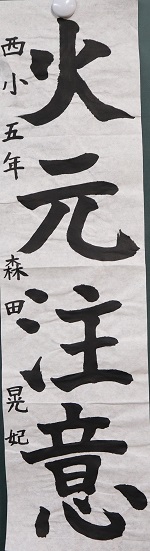 火元注意
西小五年 森田 晃妃